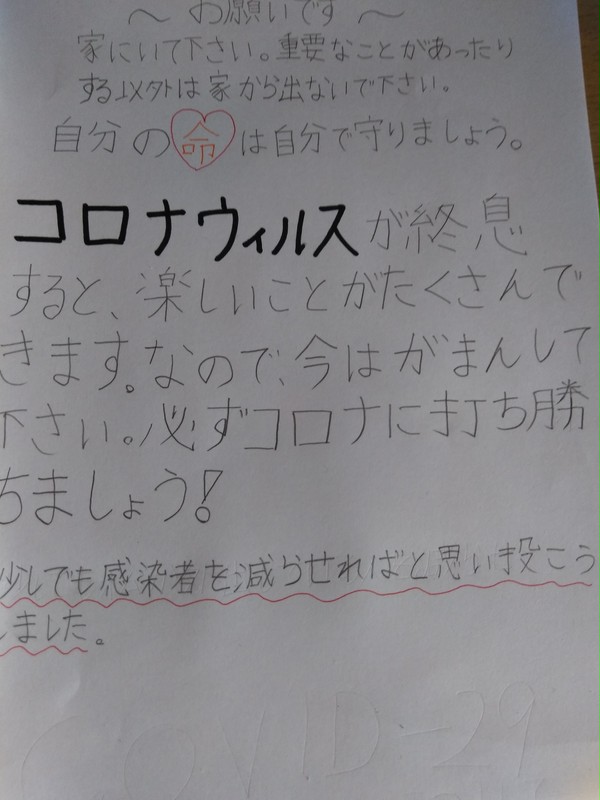 ～ お願いです ～
家にいて下さい。重要なことがあったり
する以外は家から出ないで下さい。
自分の命は自分で守りましょう。
コロナウィルスが終息
すると、楽しいことがたくさんで
きます。なので、今はがまんして
下さい。必ずコロナに打ち勝
ちましょう!
少しでも感染者を減らせればと思い投こう
しました。
COVID-29